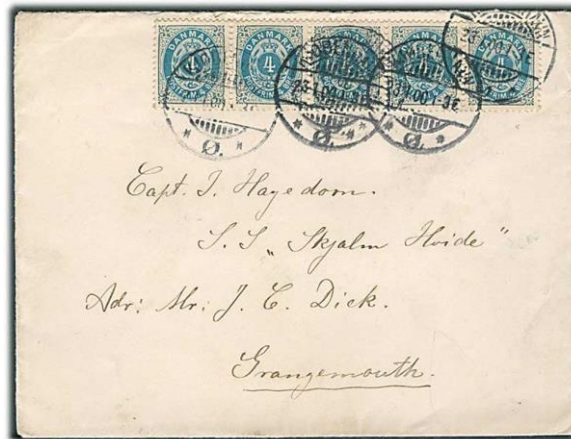 DANMARK DANMARK DANMARK DANMARK DANMARK
4 4 4 4 4
Ø. Ø.
Capt. J. Hagedorn.
S. S „ Skjalm Hvide "
Adr: Mr: J. C. Dick.
Grangemouth.